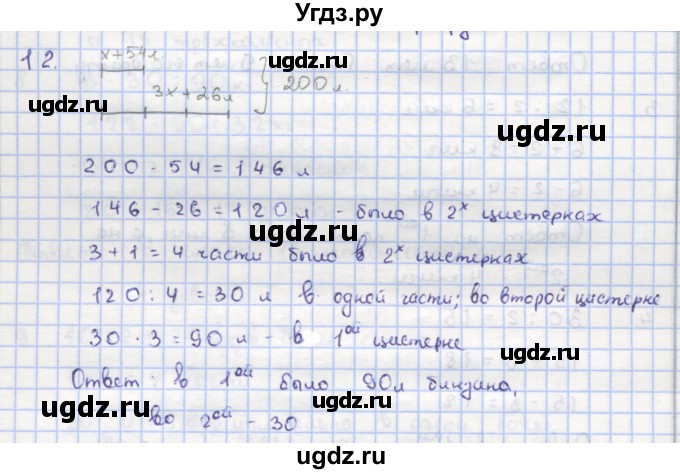 Угдз.ру
12. x+54л
3x+26л } 200 л.
200 - 54 = 146 л
146 - 26 = 120 л - было в 2х цистернах
ugdz.ru ugdz.ru
3 + 1 = 4 части было в 2х цистернах
120 : 4 = 30 л в одной части; во второй цистерне
30 · 3 = 90 л - в 1ой цистерне
Ответ: в 1ой было 90л бинзина,
ugdz.ru ugdz.ru
во 2ой - 30
ugdz.ru